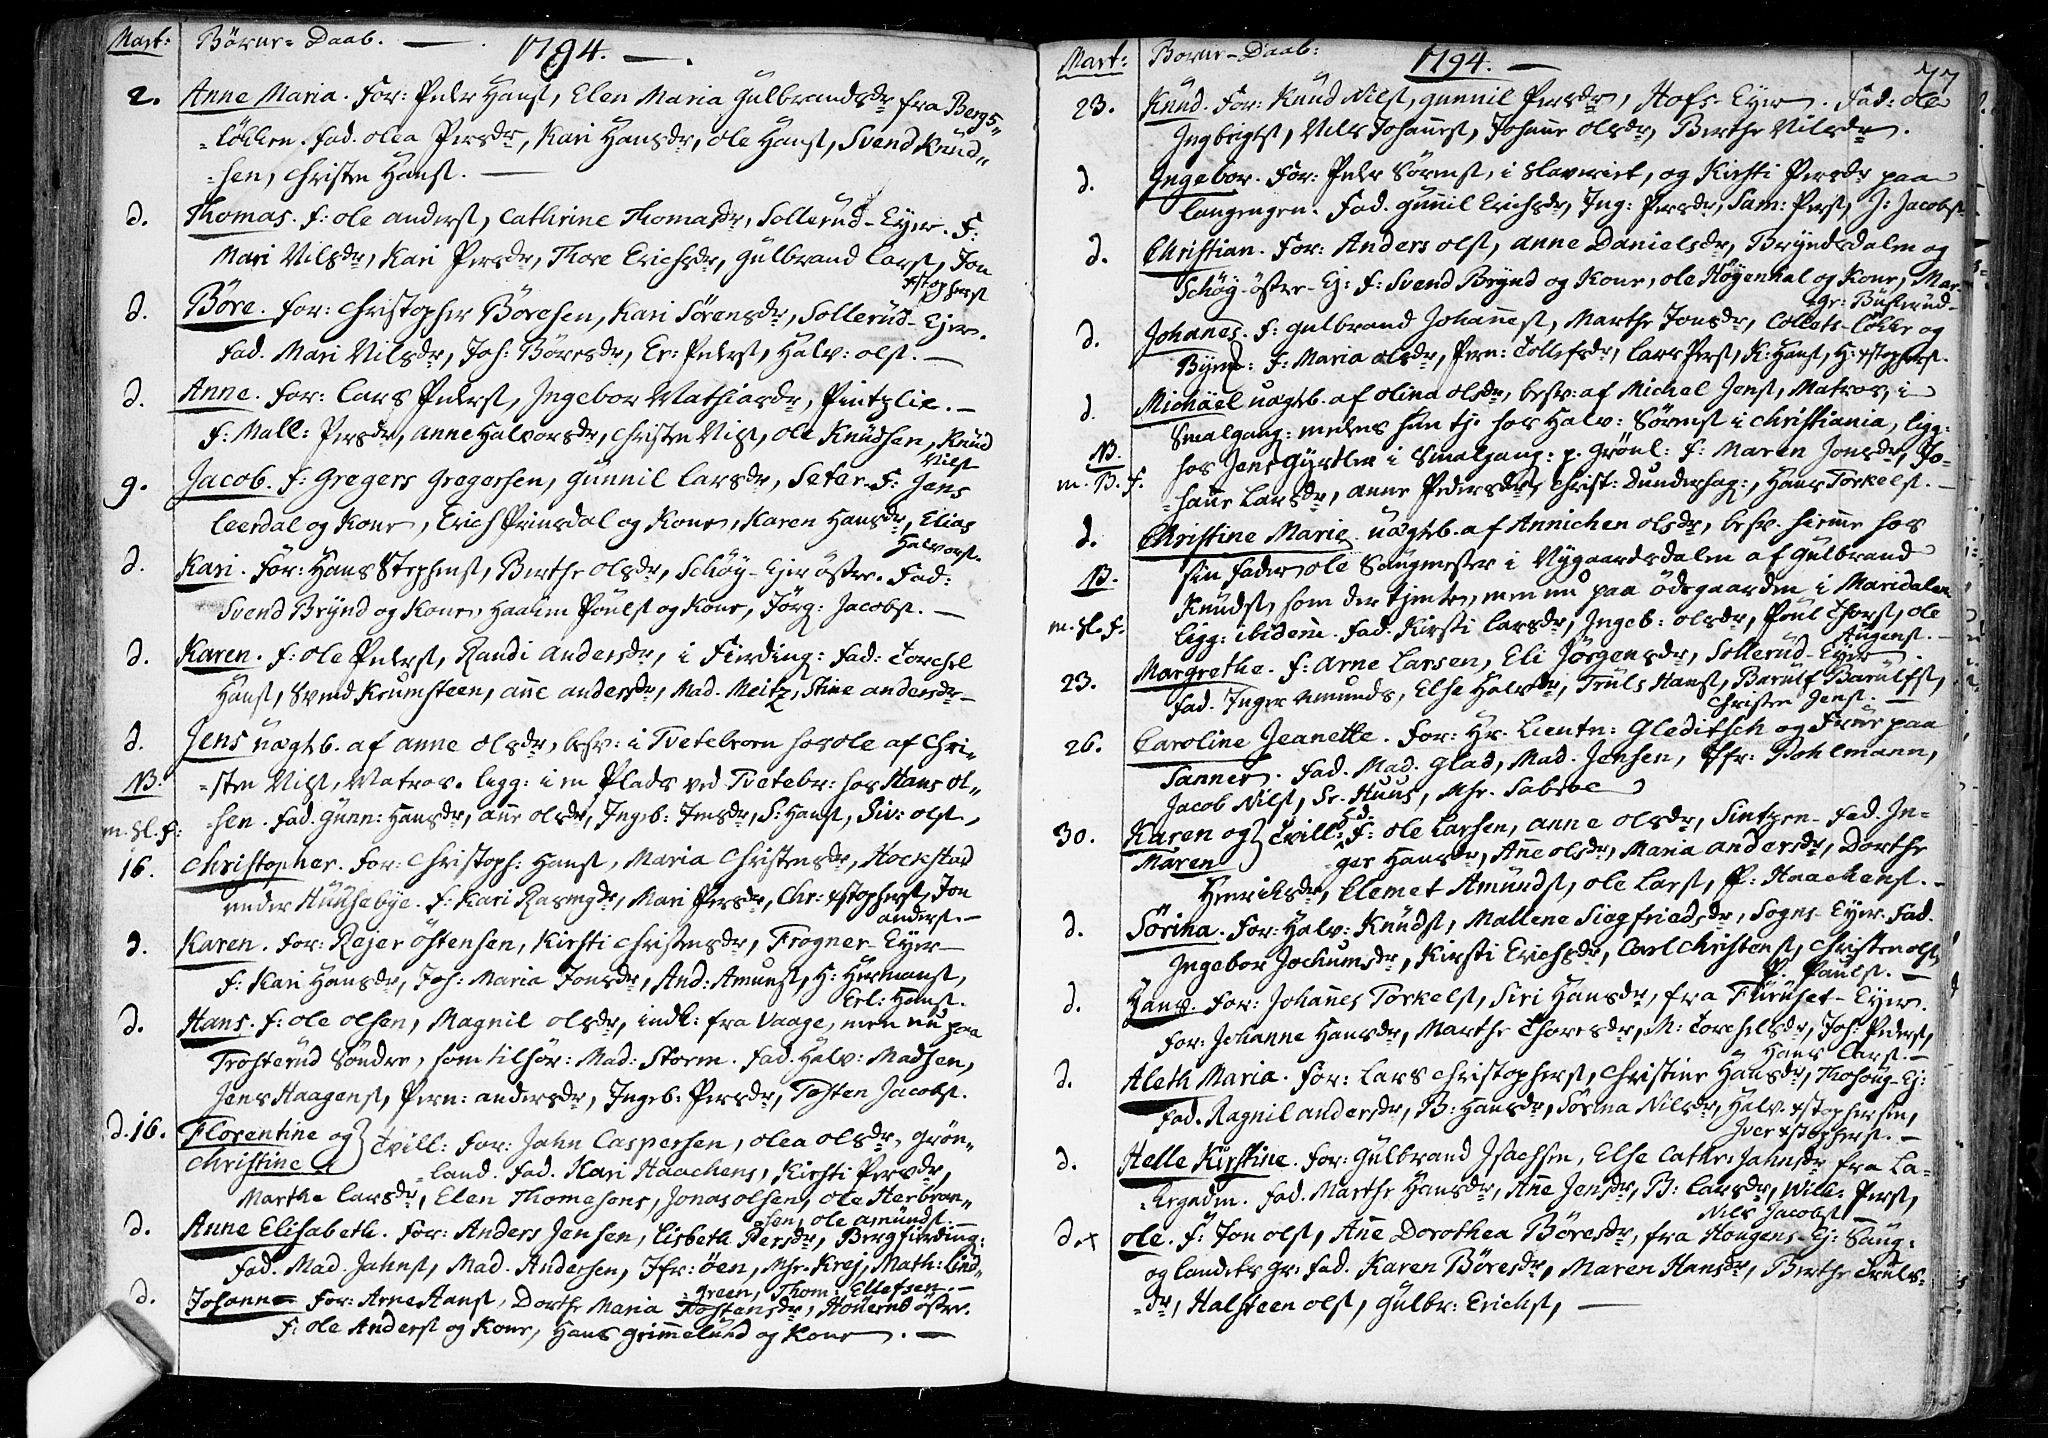 Mart: Börne-Daab. — 1794. —
2. Anne Maria. For: Peder Hans., Elen Maria Gulbrandsdr fra Bergs„
„lökken. Fad. Olea Persdr, Kari Hansdr, Ole Hans., Svend Knud„
„sen, Christen Hans. —
d. Thomas. F: Ole Anders., Cathrine Thomasdr, Sollerud-Eyer. F:
Mari Nilsdr, Kari Persdr, Thore Erichsdr, Gulbrand Lars., Jon
xstophers.
d. Böre. For: Christopher Böresen, Kari Sörensdr, Sollerud-Ejer.
Fad. Mari Nilsdr, Joh: Böresdr, Er: Peders., Halv: Ols. —
d. Anne. For: Lars Peders., Ingebor Mathiasdr, Pintzlie. —
F: Mall: Persdr, Anne Halvorsdr, Christen Nils., Ole Knudsen, Knud
Nils.
9. Jacob. F: Gregers Gregersen, Gunnil Larsdr, Seter. F: Jens
Leerdal og Kone, Erich Prinsdal og Kone, Karen Hansdr, Elias
Halvors.
d. Kari. For: Hans Stephens., Berthe Olsdr, Schöy-Ejer östre. Fad:
Svend Brynd og Kone, Haagen Pouls. og Kone, Jörg: Jacobs. —
d. Karen. F: Ole Peders., Randi Andersdr, i Fierding: Fad: Torchel
Hans., Svend Krumsteen, Anne Andersdr, Mad. Meitz, Stine Andersdr —
d. Jens uægtb. af Anne Olsdr, besv: i Tvetebroen hos Ole af Chri-
NB. „sten Nils., Matros. ligg: i en Plads ved Tvetebr: hos Hans Ol„
m. Sl. F: „sen. Fad. Gunn: Hansdr, Anne Olsdr, Ingeb: Jensdr, S: Hans., Siv: Ols.,
16. Christopher. For: Christoph: Hans., Maria Christensdr, Hockstad
under Huusebye. F: Kari Rasmgdr, Mari Persdr, Chr: xstophers., Jon
Anders. —
d. Karen. For: Rejer Östensen, Kirsti Christensdr, Frogner-Eyer —
F: Kari Hansdr, Joh: Maria Jonsdr, And: Amuns., H: Hermans.,
Erl: Hans.
d. Hans. F: Ole Olsen, Magnil Olsdr, indl: fra Vaage, men nu paa
Trosterud Söndre, som tilhör: Mad: Storm. Fad. Halv: Madsen,
Jens Haagens., Pern: Andersdr, Ingeb: Persdr, Tosten Jacobs.
d. 16. Florentine og } Tvill: For: Jahn Caspersen, Olea Olsdr, Grön„
Christine } „land. Fad. Kari Haachens, Kirsti Persdr,
Marthe Larsdr, Elen Thomesens, Jonas Olsen, Ole Herbran„
„sen, Ole Amunds. —
d. Anne Elisabeth. For: Anders Jensen, Lisbeth Persdr, Bergfierding:
Fad. Mad. Jahns., Mad. Andersen, Jfr: Öen, Mhr. Krej, Math: Lind„
„green, Thom: Ellefsen. —
d. Johanne For: Arne Hans., Dorthe Maria Tostensdr, Houerud östre.
F: Ole Anders. og Kone, Hans Grimmelund og Kone. —
Mart: Börne-Daab: 1794. — 77
23. Knud. For: Knud Nils., Gunnil Persdr, Hofs-Eyer. Fad: Ole
Ingbrigts., Nils Johannes., Johanne Olsdr, Berthe Nilsdr.
d. Ingebor. For: Peder Sörens., i Slaveriet, og Kirsti Persdr paa
Langengen. Fad. Gunnil Erichsdr, Ing: Persdr, Sam: Pers., J: Jacobs.
d. Christian. For: Anders Ols., Anne Danielsdr, Bryndsdalen og
Schöy-östre-Ej: F: Svend Brynd og Kone, Ole Höyenhal og Kone, Mar„
„gr: Busterud —
d. Johanes. F: Gulbrand Johannes., Marthe Jonsdr, Collets-Lökke og
Bymd: F: Maria Olsdr, Pern: Tollefsdr, Lars Pers., K: Hans., H: xstophers.
d. Michael uægtb. af Olina Olsdr, besv: af Michel Jens., Matros, i
Smalgang: medens hun tj. hos Halv: Sörens. i Christiania, ligg:
NB. hos Jens Gyrtler i Smalgang: p. Grönl: F: Maren Jonsdr, Jo-
m. B. F. „hanne Larsdr, Anne Pedersdr, Christ: Dunderhag:, Hans Torkels. —
d. Christine Marie uægtb. af Annichen Olsdr, besv. hieme hos
sin Fader Ole Saugmester i Nygaardsdalen af Gulbrand
NB. Knuds., som der tjente, men nu paa Ödegaarden i Maridalen
m. Sl. F: ligg: ibidem. Fad. Kirsti Larsdr, Ingeb: Olsdr, Poul Thors., Ole
Augens. —
23. Margrethe. F: Arne Larsen, Eli Jörgensdr, Sollerud-Eyer.
Fad. Inger Amunds, Else Halvdr, Truls Hans., Barulf Barulfs.,
Christen Jens. —
26. Caroline Jeanette. For: Hr. Lieutn: Gleditsch og Frue paa
Sanner. Fad. Mad. Glad, Mad. Jensen, Jfr: Pohlmann,
Jacob Nils., Sr. Huus, Mhr. Sabroe
30. Karen og } Tvill: F: Ole Larsen, Anne Olsdr, Sintzen. Fad. In-
Maren } „ger Hansdr, Anne Olsdr, Maria Andersdr, Dorthe
Henriksdr, Clemet Amunds., Ole Lars., P: Haachens. —
d. Sörina. For: Halv: Knuds., Mallene Siegfriedsdr, Sogns-Eyer. Fad.
Ingebor Jochumsdr, Kirsti Erichsdr, Carl Christens., Christen Ols.
P. Pauls. —
d. Hans. For: Johannes Torkels., Siri Hansdr, fra Furuset-Eyer.
For: Johanne Hansdr, Marthe Thoresdr, M: Torchelsdr, Joh: Peders.,
Hans Lars. —
d. Aleth Maria. For: Lars Christophers., Christine Hansdr, Thosoug-Ej:
Fad. Ragnil Andersdr, B: Hansdr, Sörina Nilsdr, Halv. xstophersen,
Iver xstophers. —
d. Helle Kirstine. For: Gulbrand Isachsen, Else Cathr: Jahnsdr fra La-
„kegaden. Fad. Marthe Hansdr, Anne Jensdr, B: Larsdr, Will: Pers.,
Nils Jacobs. —
d. x Ole. F: Jon Ols., Anne Dorothea Böresdr, fra Hougens-Ej: Saug:
og Landets Gr: Fad. Karen Böresdr, Maren Hansdr, Berthe Truls-
„dr, Halsteen Ols., Gulbr: Erichs., —